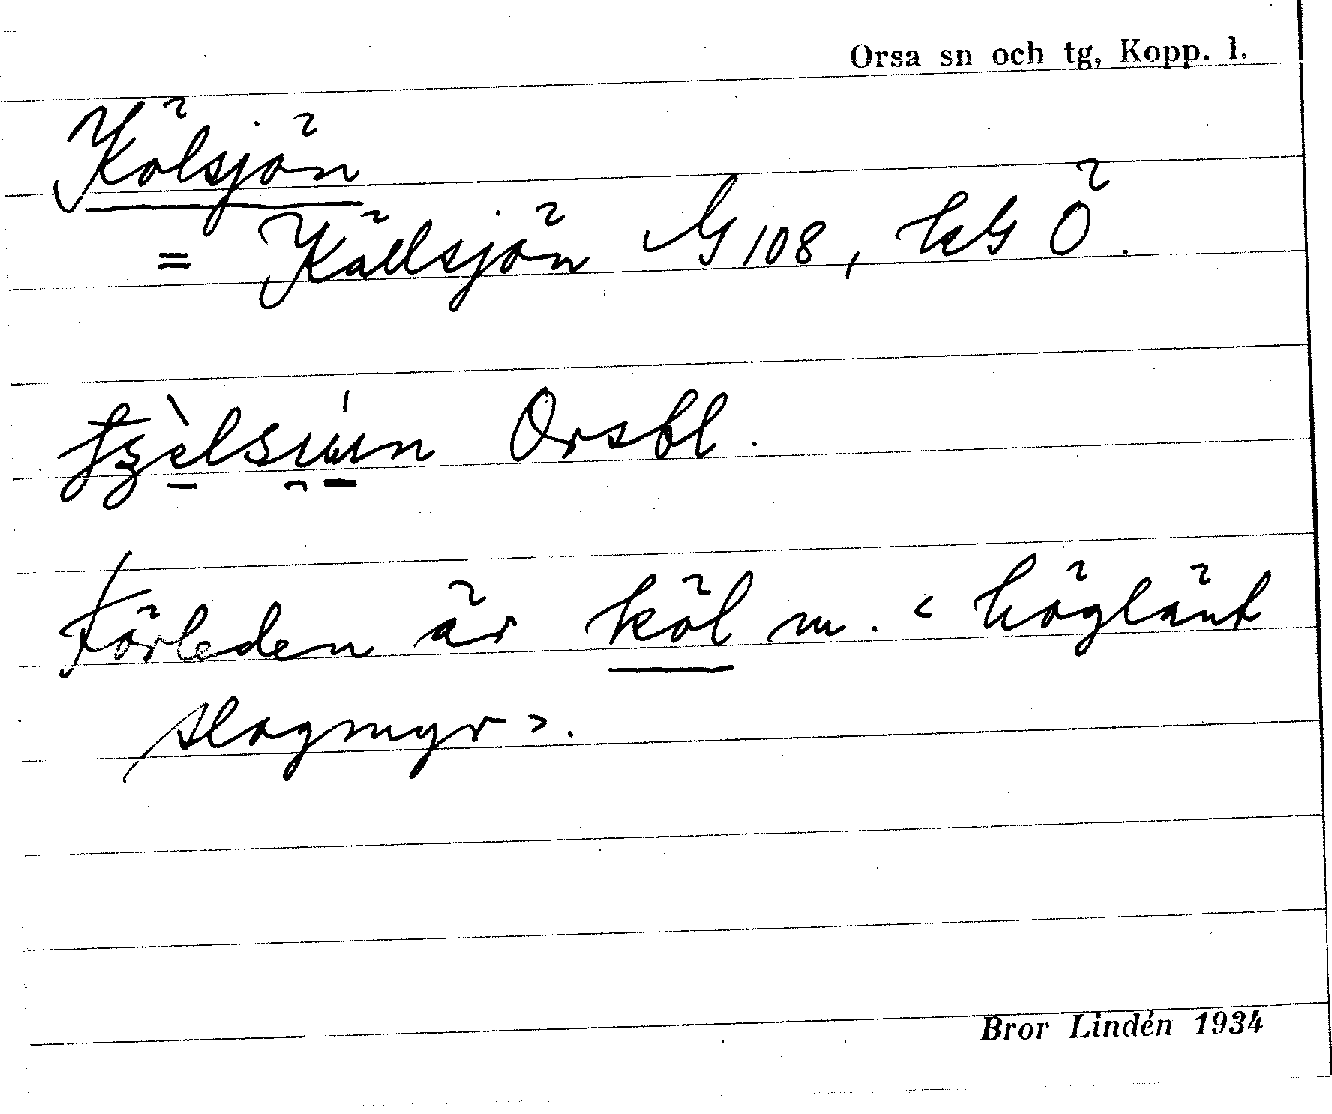 Orsa sn och tg, Kopp. l.
Kölsjön
= Källsjön G 108, kG Ö.
Orsbl.
Förleden är köl m. ‹ höglänt
slogmyr ›.
Bror Lindén 1934